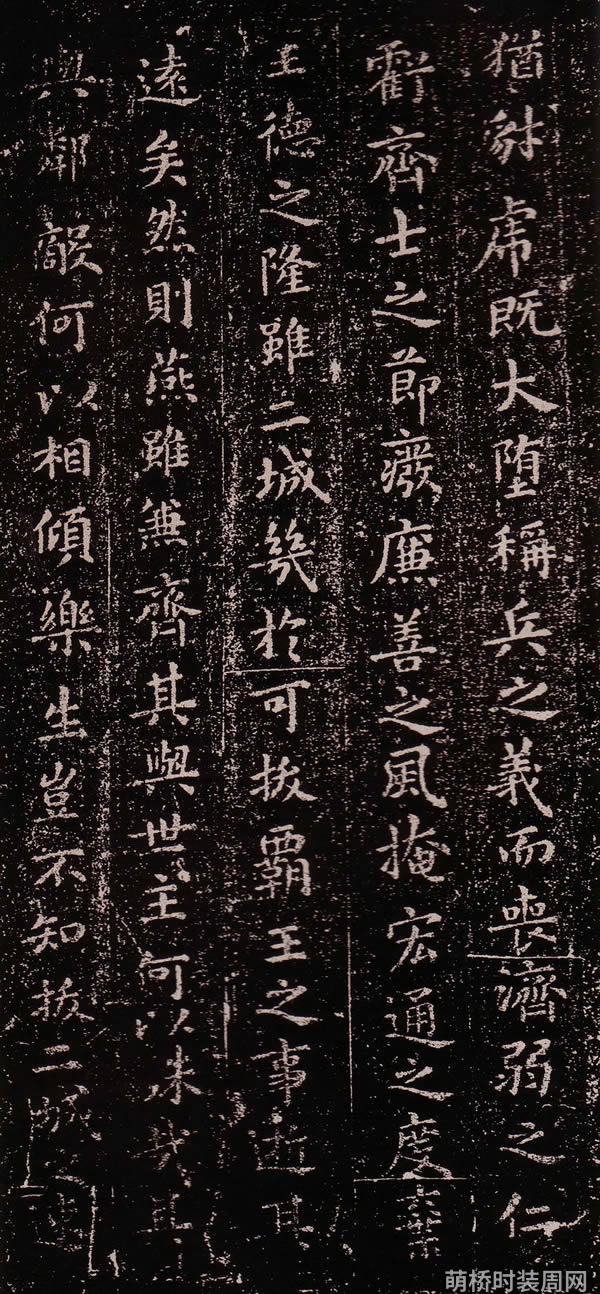 猶豺虎既大墮稱兵之義而喪濟弱之仁
虧齊士之節廢廉善之風掩宏通之度棄
王德之隆雖二城幾於可拔霸王之事逝其
遠矣然則燕雖兼齊其與世主何以殊哉其
與鄰敵何以相傾樂生豈不知拔二城之速
萌桥时装周网